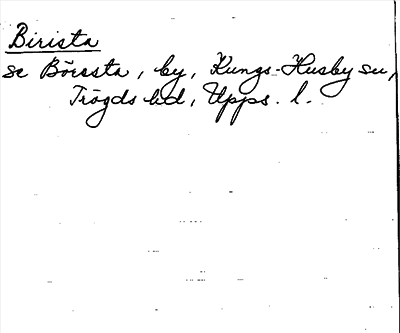 Birista
se Börsta, by, Kungs-Husby sn,
Trögds hd, Upps. l.